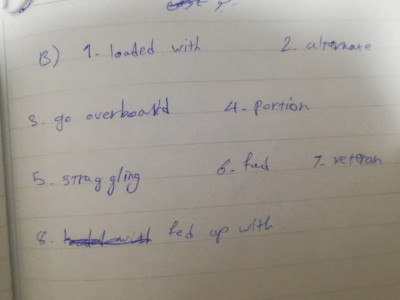 B) 1- loaded with 2 alternate
3- go overboard 4- portion
5- straggling 6- fud 7- veteran
8. fed up with